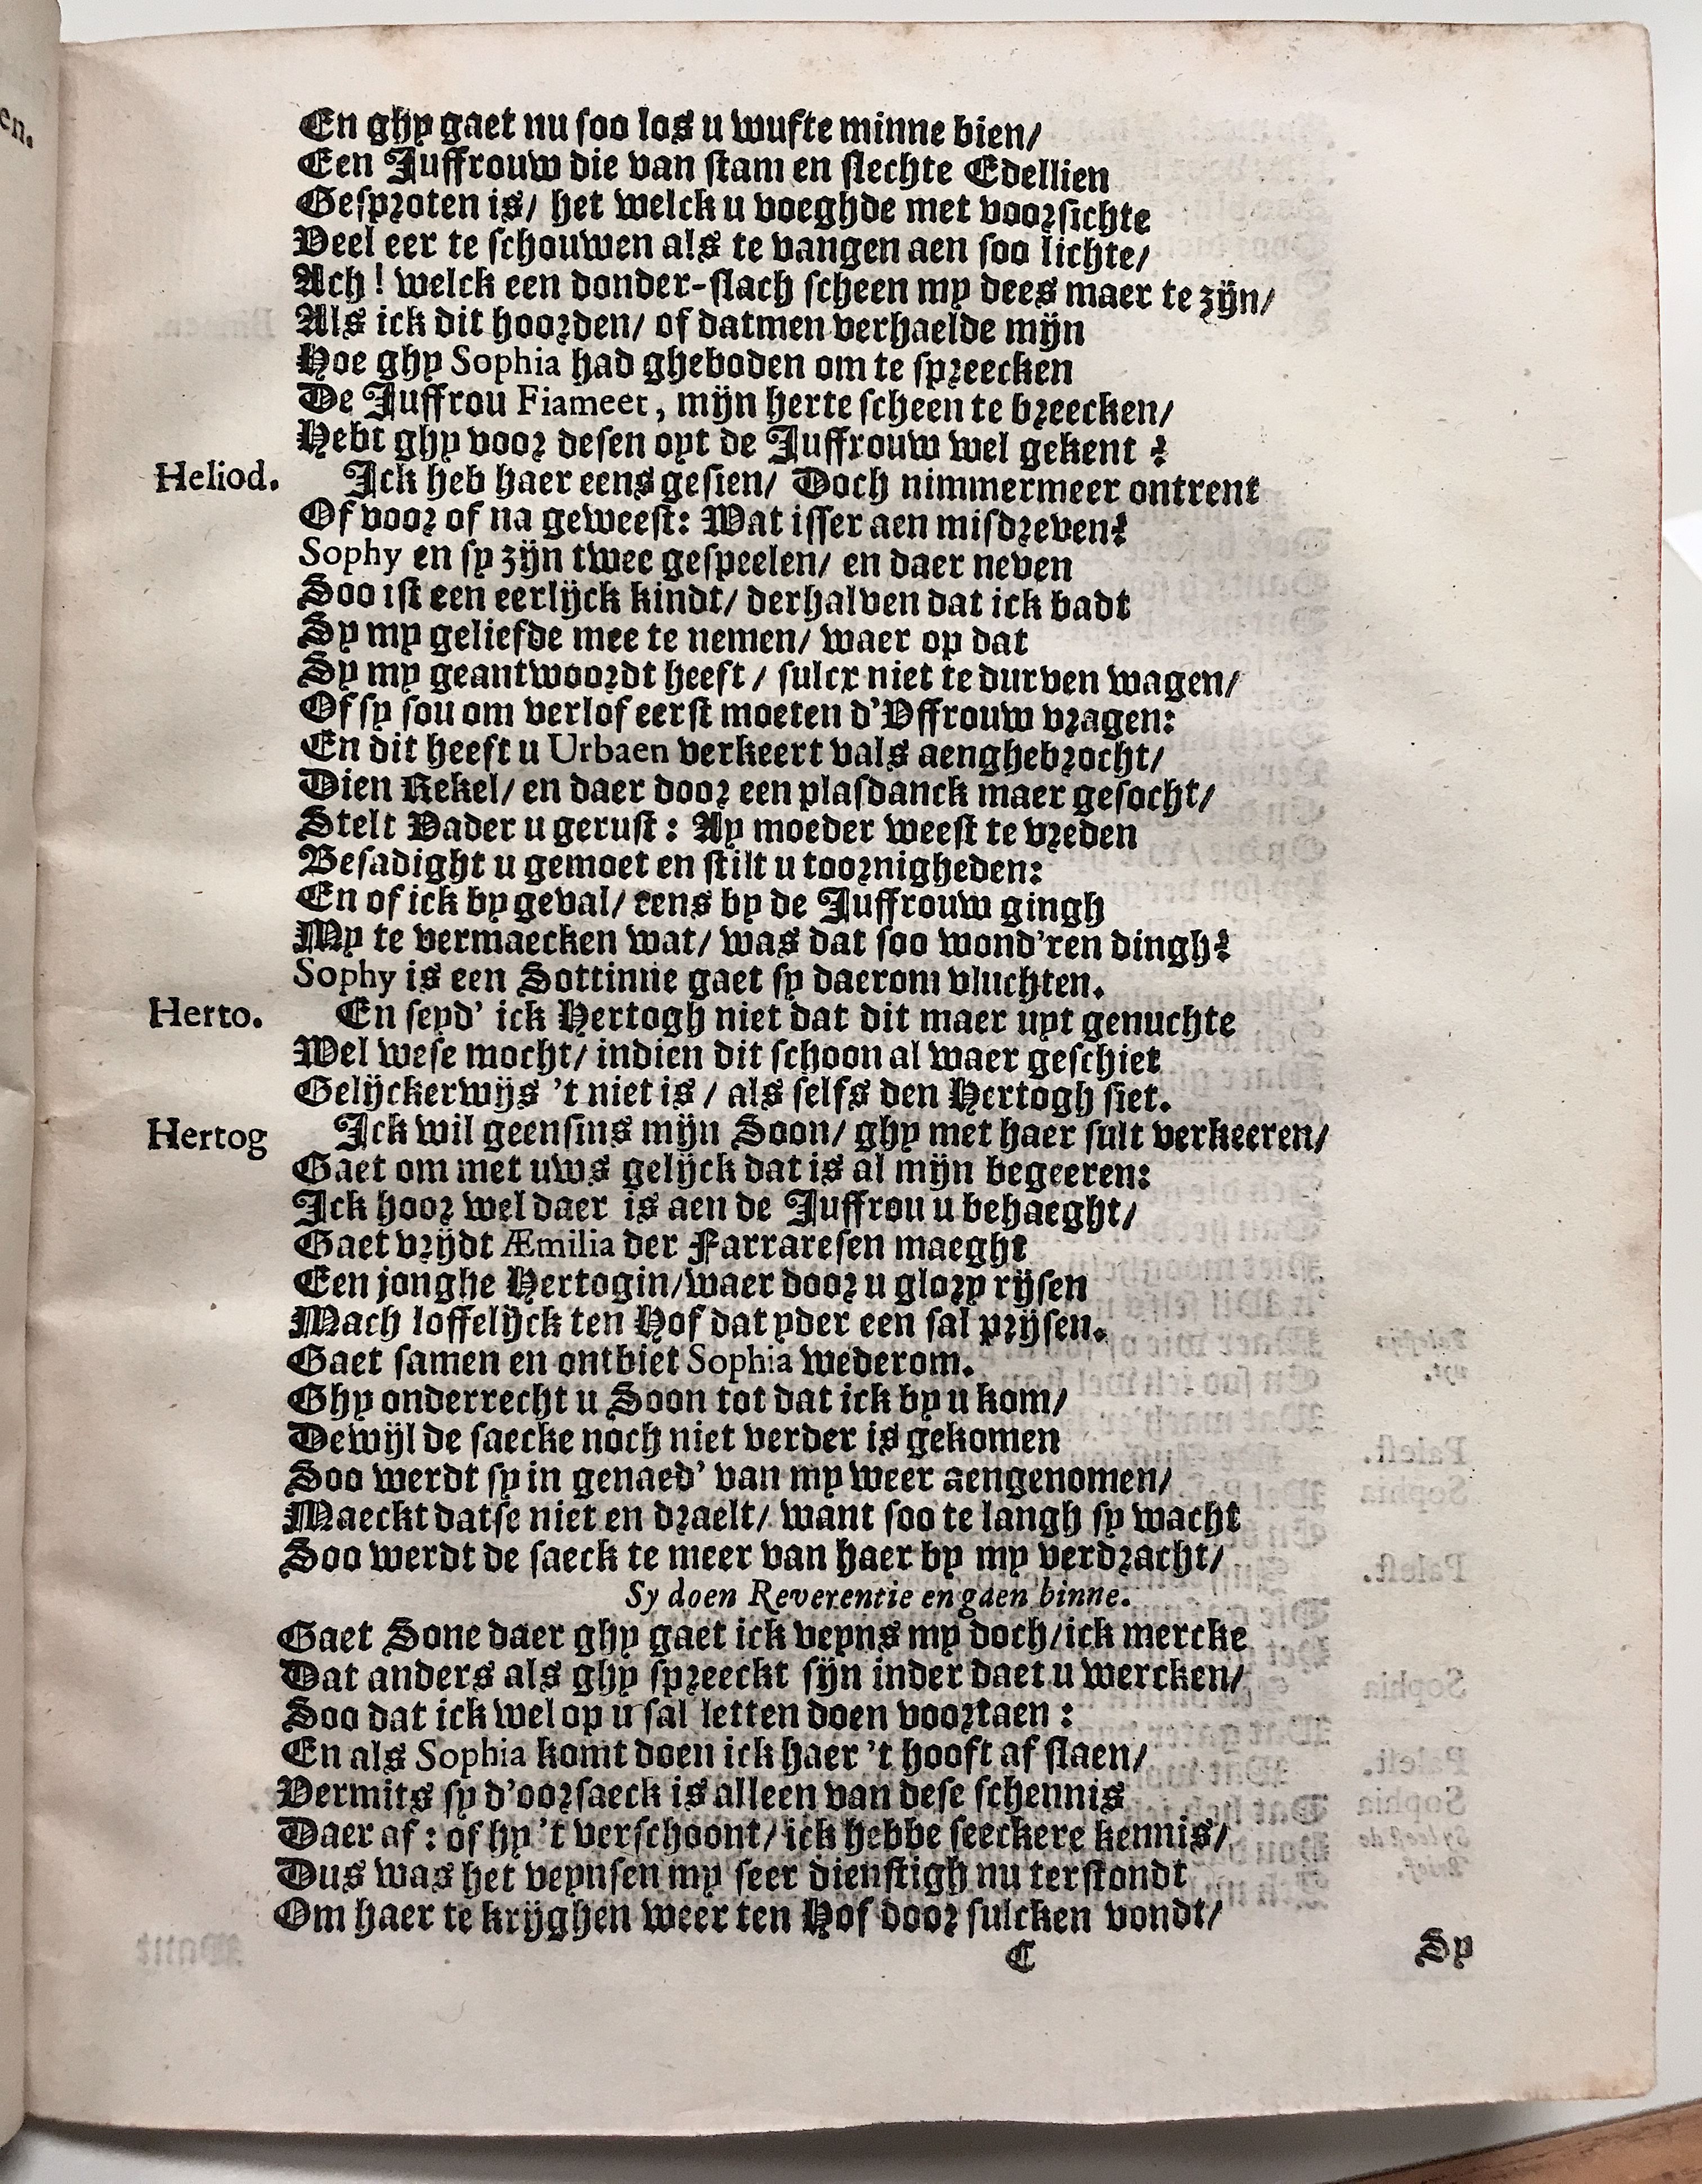 En ghy gaet nu soo los u wufte minne bien/
Een Juffrouw die van stam en slechte Edellien
Gesproten is/ het welck u voeghde met voorsichte
Veel eer te schouwen als te vangen aen soo lichte/
Ach! welck een donder-slach scheen my dees maer te zijn/
Als ick dit hoorden/ of datmen verhaelde mijn
Hoe ghy Sophia had gheboden om te spreecken
De Juffrou Fiameet, mijn herte scheen te breecken/
Hebt ghy voor desen oyt de Juffrouw wel gekent?
Heliod. Ick heb haer eens gesien/ Doch nimmermeer ontrent
Of voor of na geweest: Wat isser aen misdreven?
Sophy en sy zijn twee gespeelen/ en daer neven
Soo ist een eerlijck kindt/ derhalven dat ick badt
Sy my geliefde mee te nemen/ waer op dat
Sy my geantwoordt heeft/ sulcx niet te durven wagen/
Of sy sou om verlof eerst moeten d'Yffrouw vragen:
En dit heeft u Urbaen verkeert vals aenghebrocht/
Dien Rekel/ en daer door een plasdanck maer gesocht/
Stelt Vader u gerust: Ay moeder weest te vreden
Besadight u gemoet en stilt u toornigheden:
En of ick by geval/ eens by de Juffrouw gingh
My te vermaecken wat/ was dat soo wond'ren dingh?
Sophy is een Sottinne gaet sy daerom vluchten.
Herto. En seyd' ick Hertogh niet dat dit maer uyt genuchte
Wel wese mocht/ indien dit schoon al waer geschiet
Gelijckerwijs 't niet is/ als selfs den Hertogh siet.
Hertog Ick wil geensins mijn Soon/ ghy met haer sult verkeeren/
Gaet om met uws gelijck dat is al mijn begeeren:
Ick hoor wel daer is aen de Juffrou u behaeght/
Gaet vrijdt Æmilia der Farraresen maeght
Een jonghe Hertogin/ waer door u glory rijsen
Mach loffelijck ten Hof dat yder een sal prijsen.
Gaet samen en ontbiet Sophia wederom.
Ghy onderrecht u Soon tot dat ick by u kom/
Dewijl de saecke noch niet verder is gekomen
Soo werdt sy in genaed' van my weer aengenomen/
Maeckt datse niet en draelt/ want soo te langh sy wacht
Soo werdt de saeck te meer van haer by my verdracht/
Sy doen Reverentie en gaen binne.
Gaet Sone daer ghy gaet ick veyns my doch/ ick mercke
Dat anders als ghy spreeckt sijn inder daet u wercken/
Soo dat ick wel op u sal letten doen voortaen:
En als Sophia komt doen ick haer 't hooft af slaen/
Vermits sy d'oorsaeck is alleen van dese schennis
Daer af: of hy 't verschoont/ ick hebbe seeckere kennis/
Dus was het veynsen my seer dienstigh nu terstondt
Om haer te krijghen weer ten Hof door sulcken vondt/
C Sy
en.